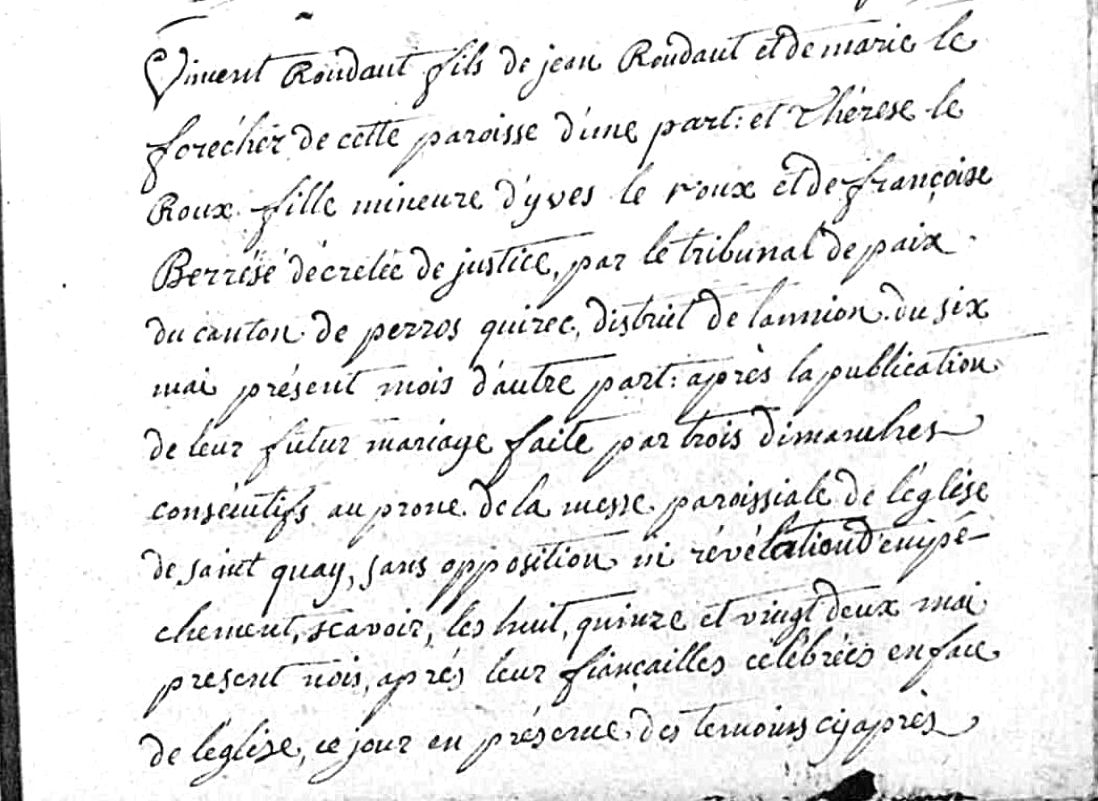 Vincent Roudaut fils de jean Roudaut et de marie le
forécher de cette paroisse d'une part: et Thérese le
Roux fille mineure d'yves le roux et de françoise
Berrésé décretée de justice, par le tribunal de paix
du canton de perros quirec, district de lannion du six
mai présent mois d'autre part: après la publication
de leur futur mariage faite par trois dimanches
consécutifs au prone de la messe paroissiale de l'église
de saint quay, sans opposition ni révélation d'empé-
chement, scavoir, les huit, quinze et vingt deux mai
present mois, aprés leur fiançailles célébrées en face
de l'église, ce jour en présence des temoins cyaprès